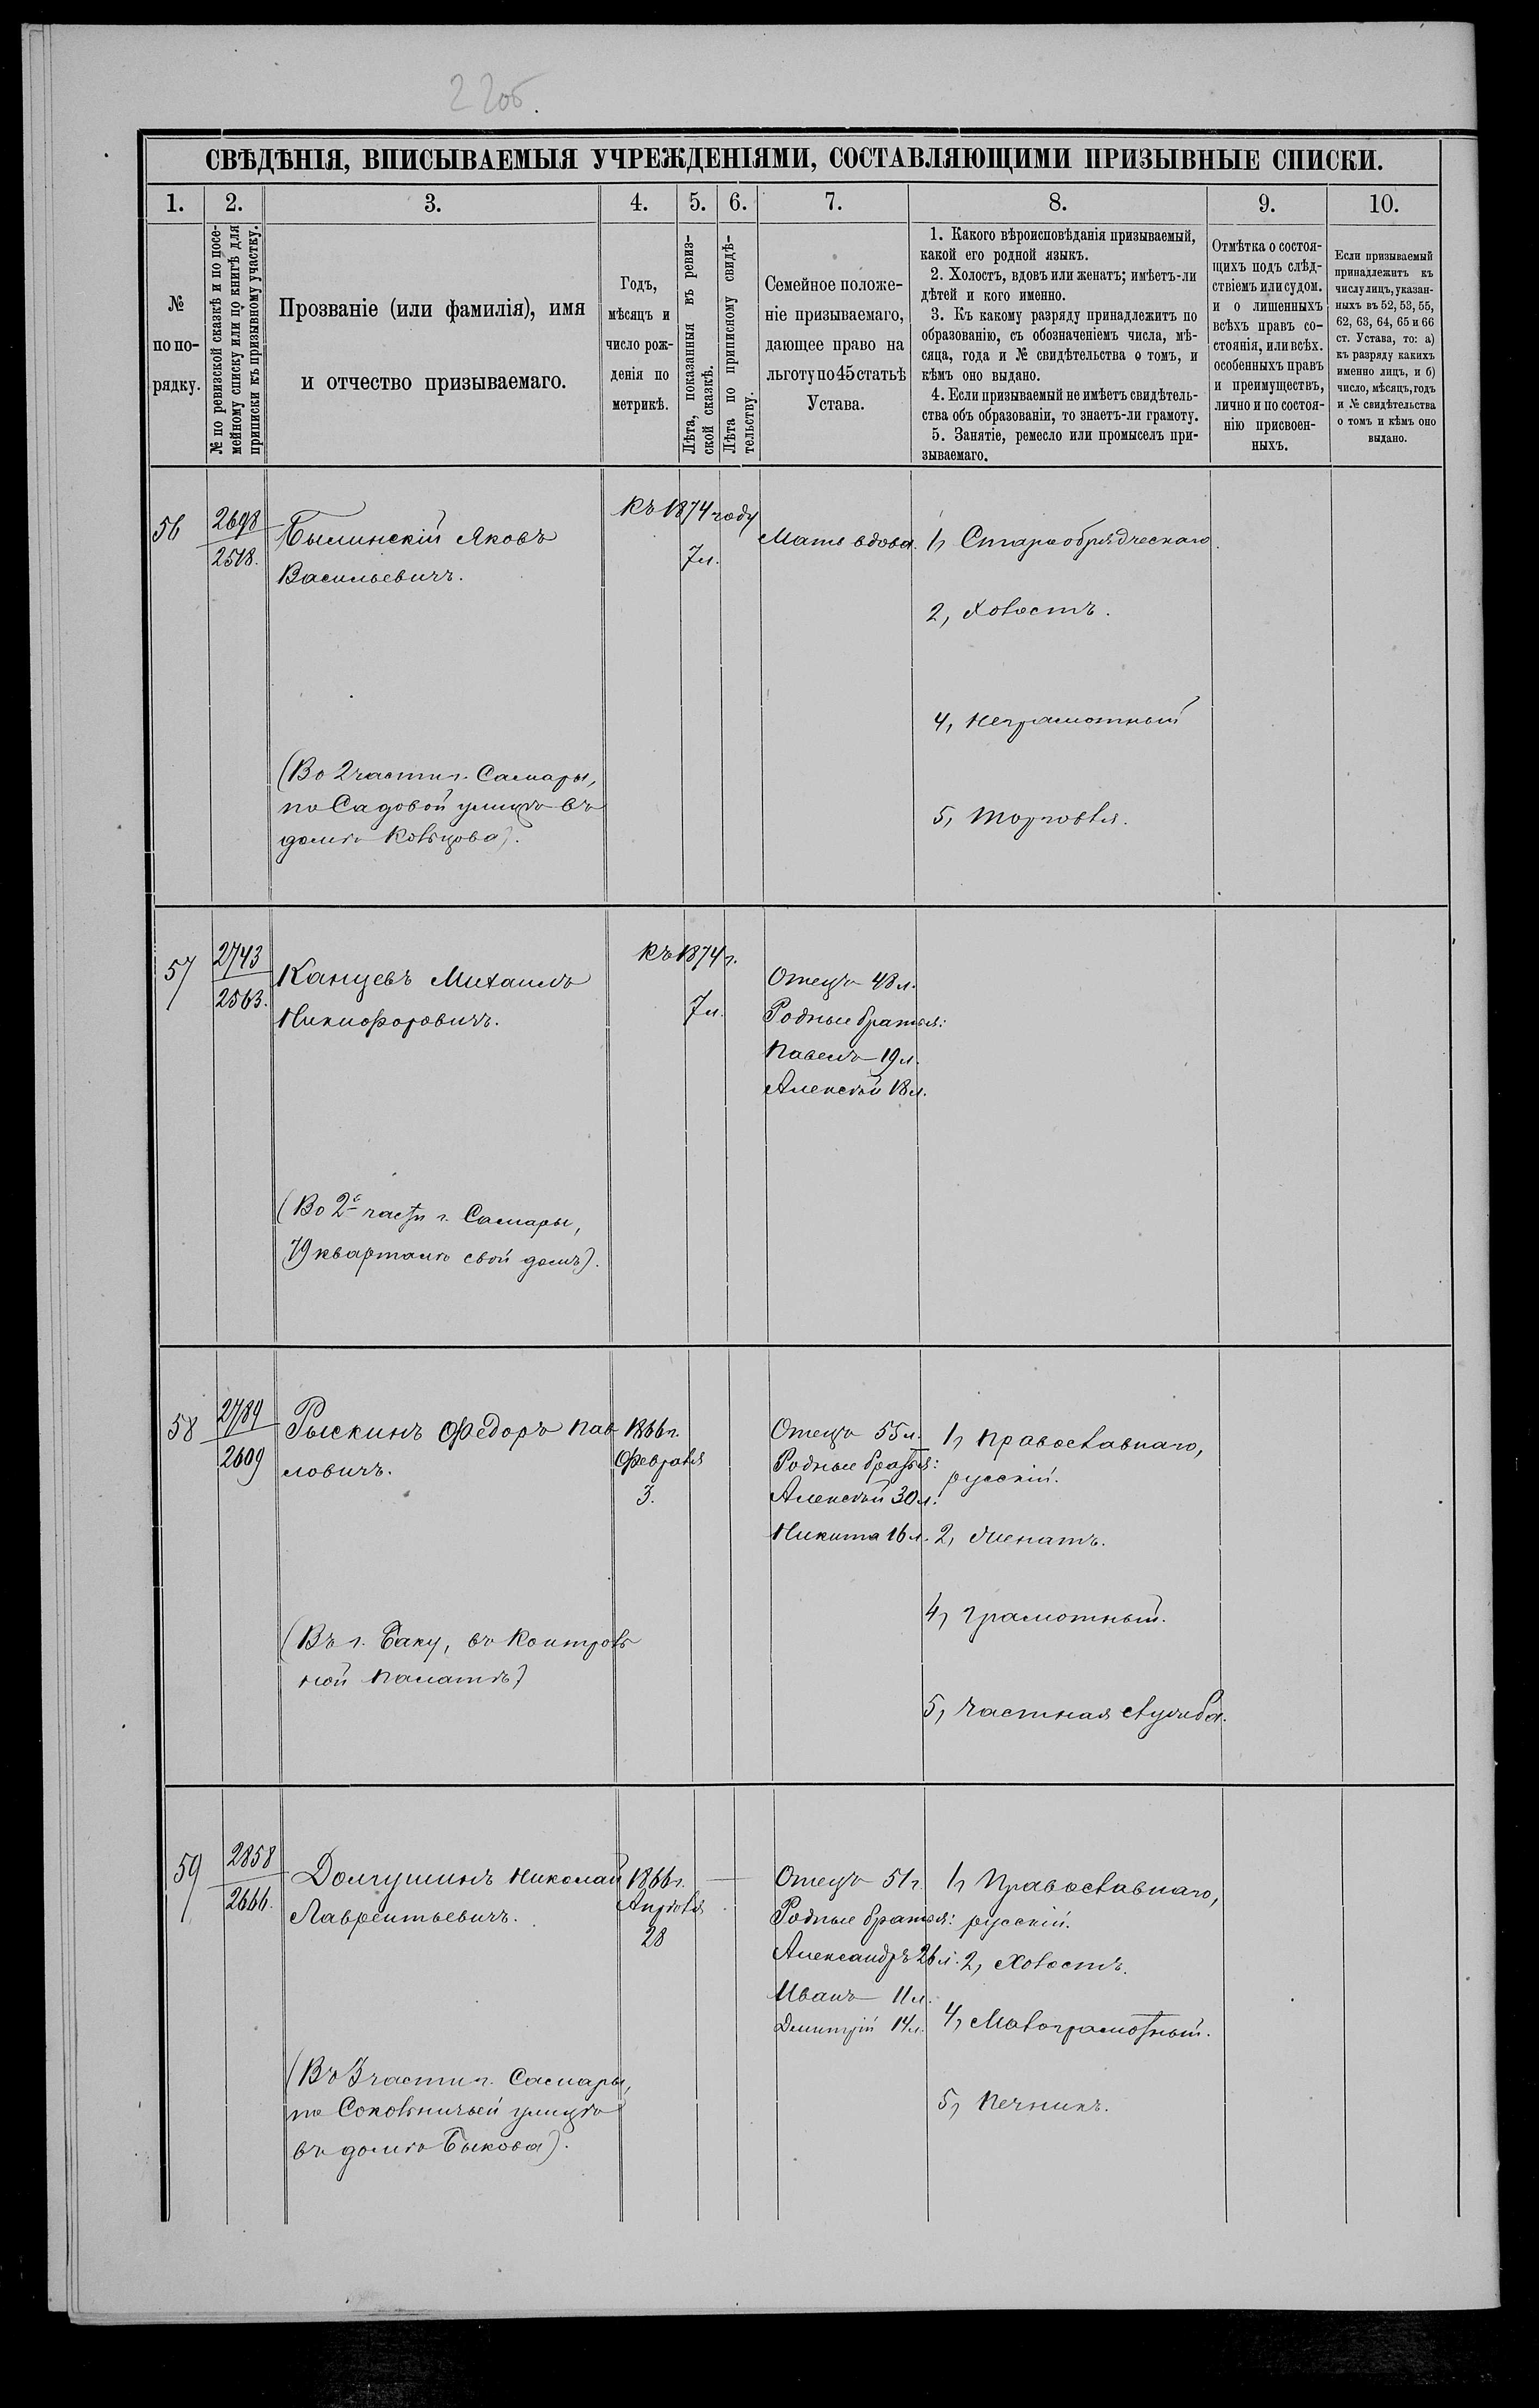 22об.
СВѢДѢНІЯ, ВПИСЫВАЕМЫЯ УЧРЕЖДЕНІЯМИ, СОСТАВЛЯЮЩИМИ ПРИЗЫВНЫЕ СПИСКИ.
1. 2. 3. 4. 5. 6. 7. 8. 9. 10.
№
по по-
рядку.
№ по ревизской сказкѣ и по посе-
мейному списку или по книгѣ для
приписки къ призывному участку.
Прозваніе (или фамилія), имя
и отчество призываемаго.
Годъ,
мѣсяцъ и
число рож-
денія по
метрикѣ.
Лѣта, показанныя въ ревиз-
ской сказкѣ.
Лѣта по приписному свидѣ-
тельству.
Семейное положе-
ніе призываемаго,
дающее право на
льготу по 45 статьѣ
Устава.
1. Какого вѣроисповѣданія призываемый,
какой его родной языкъ.
2. Холостъ, вдовъ или женатъ; имѣетъ-ли
дѣтей и кого именно.
3. Къ какому разряду принадлежитъ по
образованію, съ обозначеніемъ числа, мѣ-
сяца, года и № свидѣтельства о томъ, и
кѣмъ оно выдано.
4. Если призываемый не имѣетъ свидѣтель-
ства объ образованіи, то знаетъ-ли грамоту.
5. Занятіе, ремесло или промыселъ при-
зываемаго.
Отмѣтка о состоя-
щихъ подъ слѣд-
ствіемъ или судом.
и о лишенныхъ
всѣхъ правъ со-
стоянія, или всѣх.
особенныхъ правъ
и преимуществъ,
лично и по состоя-
нію присвоен-
ныхъ.
Если призываемый
принадлежитъ къ
числу лицъ, указан-
ныхъ въ 52, 53, 55,
62, 63, 64, 65 и 66
ст. Устава, то: а)
къ разряду какихъ
именно лицъ, и б)
число, мѣсяцъ, годъ
и № свидѣтельства
о томъ и кѣмъ оно
выдано.
56
2698
2518.
Былинскій Яковъ
Васильевичъ.
(Во 2 части г. Самары,
по Садовой улицѣ въ
домѣ Кольцова).
Къ 1874 году
7 л.
Мать вдова.
1, Старообрядческаго.
2, Холостъ.
4, Неграмотный
5, Торговля.
57
2743
2563.
Канцевъ Михаилъ
Никифоровичъ.
(Во 2й части г. Самары,
79 кварталѣ свой домъ).
Къ 1874 г.
7 л.
Отецъ 48 л.
Родные братья:
Павелъ 19 л.
Алексѣй 18 л.
58
2789
2609
Рыскинъ Федоръ Пав
ловичъ.
(Въ г. Баку, въ Контроль
ной Палатѣ)
1866 г.
Февраля
3.
Отецъ 55 л.
Родные братья:
Алексѣй 30 л.
Никита 16 л.
1, Православнаго,
русскій.
2, Женатъ.
4, Грамотный.
5, Частная служба.
59
2858
2666.
Долгушинъ Николай
Лаврентьевичъ.
(Въ 3 части г. Самары,
по Сокольничьей улицѣ
въ домѣ Быкова).
1866 г.
Апрѣля
28
Отецъ 51 г.
Родные братья:
Александръ 26 л.
Иванъ 11 л.
Дмитрій 14 л.
1, Православнаго,
русскій.
2, Холостъ.
4, Малограмотный.
5, Печникъ.